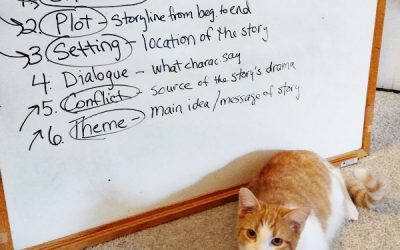 2. Plot - Storyline from beg. to end
3 Setting - location of the story
4. Dialogue - what charac. say
5. Conflict - source of the story's drama
6. Theme - main idea / message of story